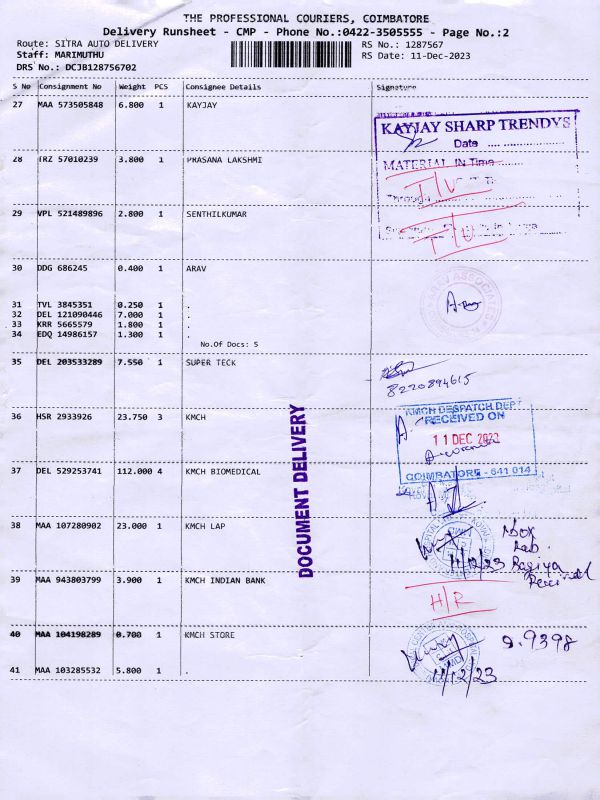 THE PROFESSIONAL COURIERS, COIMBATORE
Delivery Runsheet - CMP - Phone No.:0422-3505555 - Page No.:2
Route: SITRA AUTO DELIVERY
RS No.: 1287567
Staff: MARIMUTHU
RS Date: 11-Dec-2023
DRS No.: DCJB128756702
S No Consignment No Weight PCS Consignee Details Signature
27 MAA 573505848 6.800 1 KAYJAY
KAYJAY SHARP TRENDYS
Date
28 TRZ 57010239 3.800 1 PRASANA LAKSHMI
MATERIAL IN Time
I/V
29 VPL 521489896 2.800 1 SENTHILKUMAR
30 DDG 686245 0.400 1 ARAV
31 TVL 3845351 0.250 1 .
32 DEL 121090446 7.000 1 .
33 KRR 5665579 1.800 1 .
34 EDQ 14986157 1.300 1 .
No.Of Docs: 5
35 DEL 203533289 7.550 1 SUPER TECK
8220894615
36 HSR 2933926 23.750 3 KMCH
KMCH DESPATCH DEPT
RECEIVED ON
11 DEC 2023
COIMBATORE - 641 014
DOCUMENT DELIVERY
37 DEL 529253741 112.000 4 KMCH BIOMEDICAL
38 MAA 107280902 23.000 1 KMCH LAP
11/12/23
Lab
39 MAA 943803799 3.900 1 KMCH INDIAN BANK
H/R
40 MAA 104198289 0.700 1 KMCH STORE
9398
41 MAA 103285532 5.800 1
11/12/23